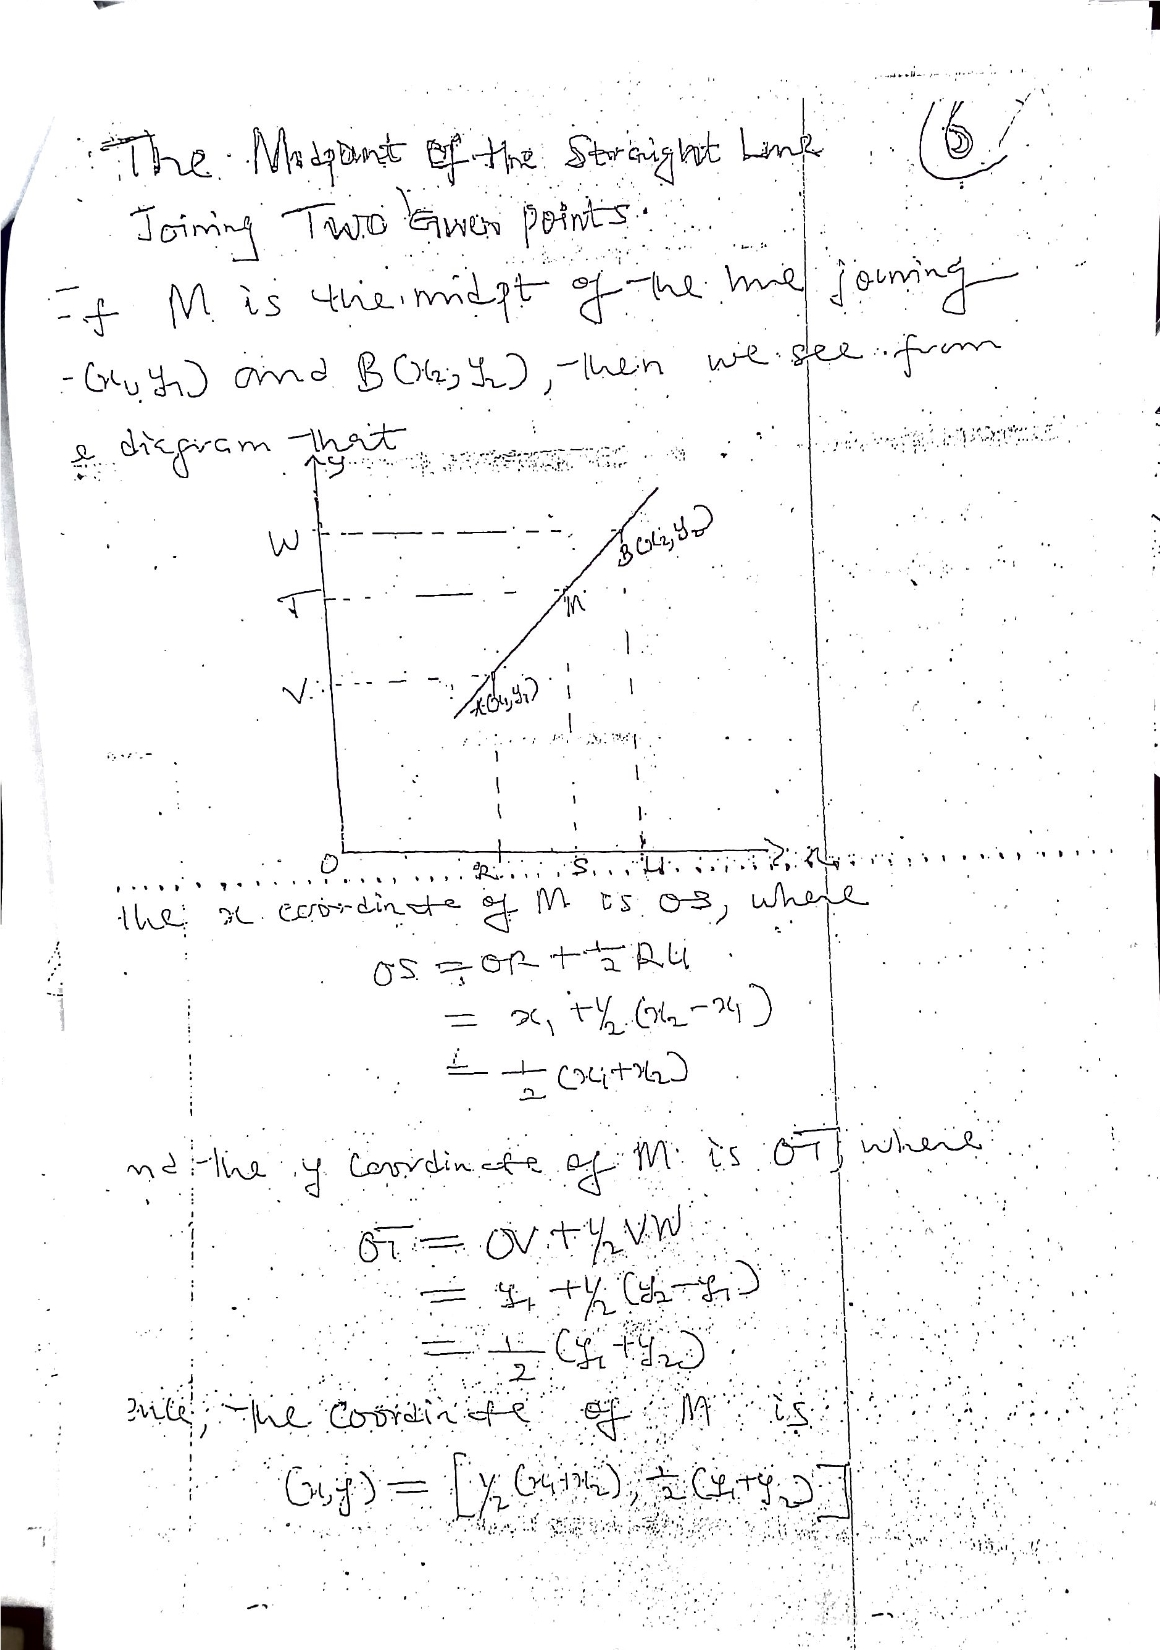 6
The Midpoint of the Straight Link
Joining Two Given points.
If M is the midpt of the line joining
(x₁, y₁) and B(x₂, y₂), then we see from
e diagram that
y
W
B(x₂, y₂)
T
M
V
A(x₁, y₁)
O R S U x
the x coordinate of M is OS, where
OS = OR + 1/2 RU
= x₁ + 1/2 (x₂ - x₁)
= 1/2 (x₁ + x₂)
nd the y coordinate of M is OT, where
OT = OV + 1/2 VW
= y₁ + 1/2 (y₂ - y₁)
= 1/2 (y₁ + y₂)
ence, the coordinate of M is
(x, y) = [1/2 (x₁ + x₂), 1/2 (y₁ + y₂)]